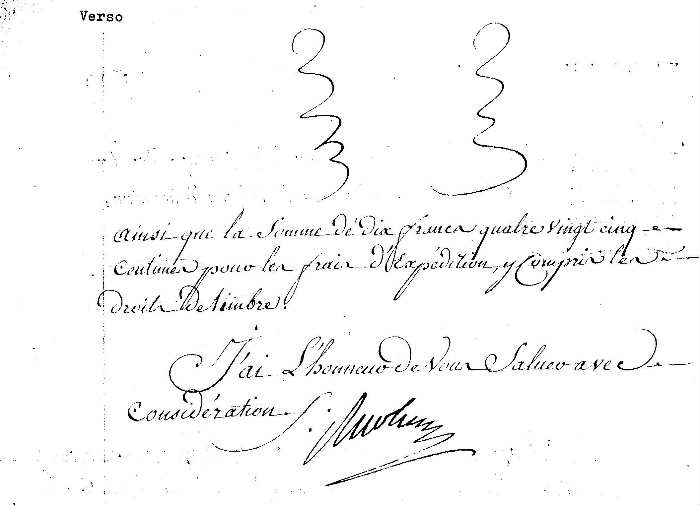 Verso
Ainsi que la Somme de dix francs quatre vingt cinq
Centimes pour les frais d'Expédition, y Compris les
droits de timbre.
J'ai L'honneur de Vous Saluer avec
Considération